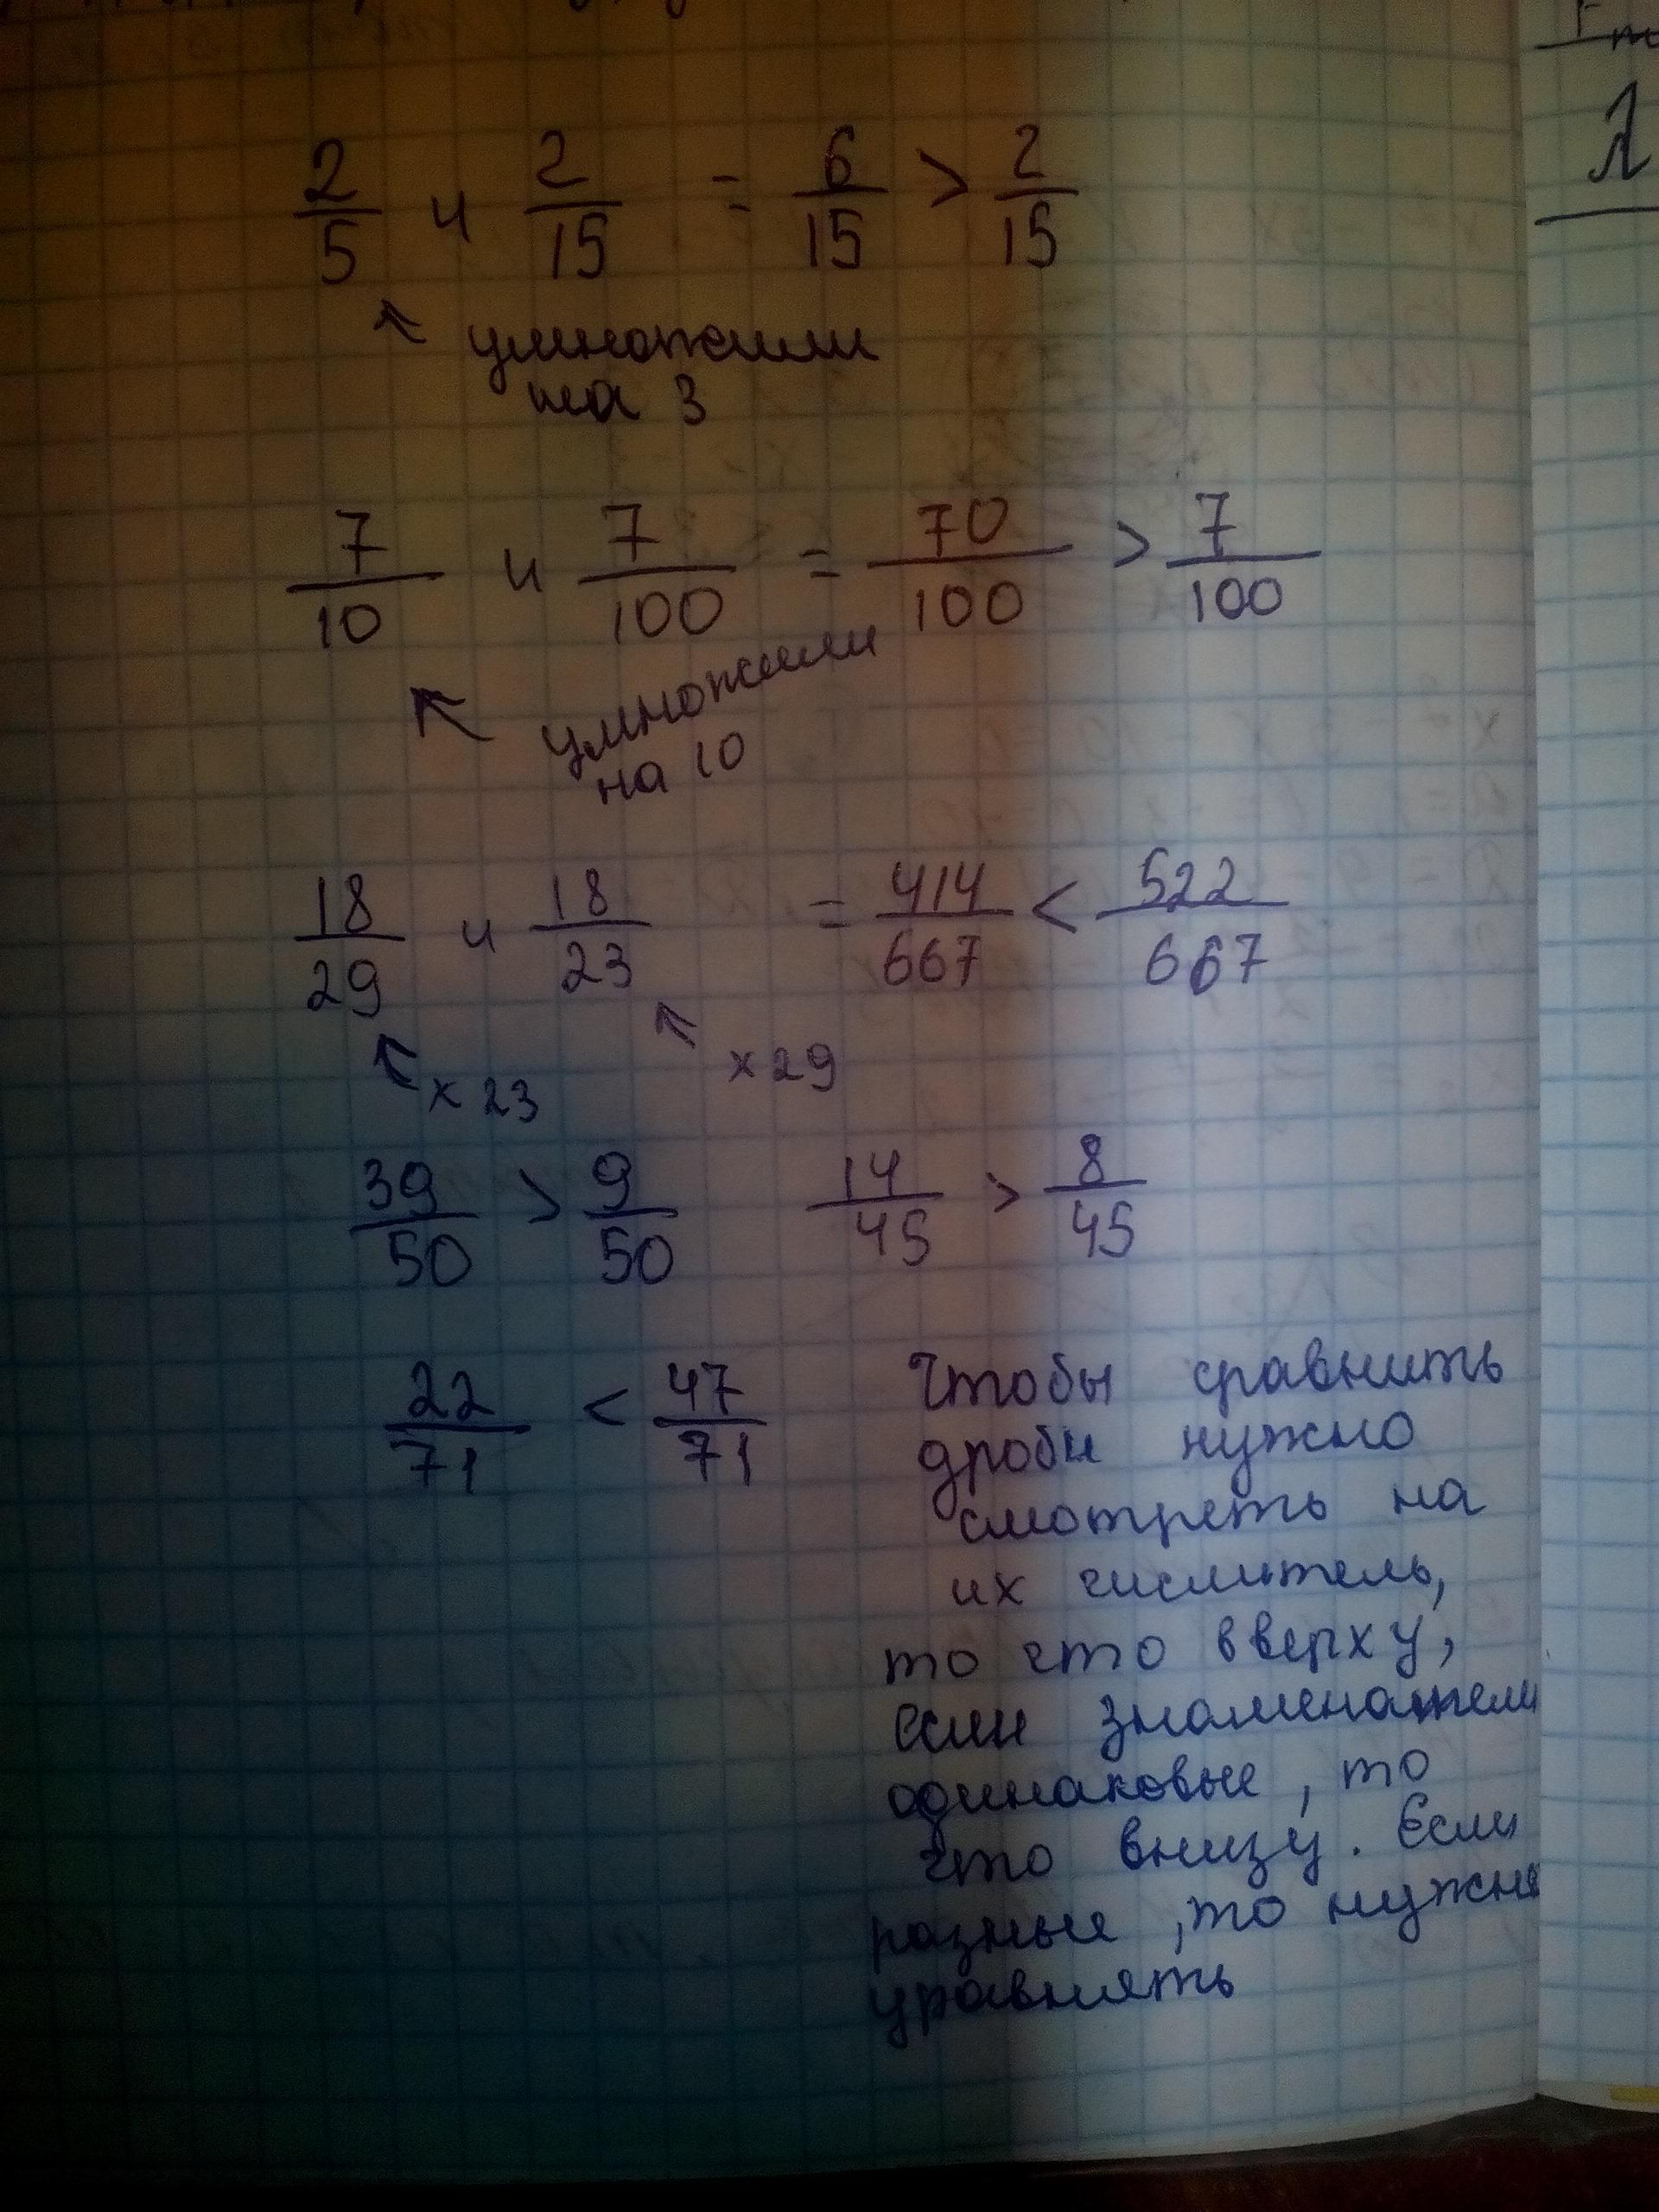 2/5 и 2/15 = 6/15 > 2/15
умножили
на 3
7/10 и 7/100 = 70/100 > 7/100
умножили
на 10
18/29 и 18/23 = 414/667 < 522/667
x 23
x 29
39/50 > 9/50 14/45 > 8/45
22/71 < 47/71
Чтобы сравнить
дроби нужно
смотреть на
их числитель,
то что вверху,
если знаменатели
одинаковые, то
что внизу. Если
разные, то нужно
уравнять